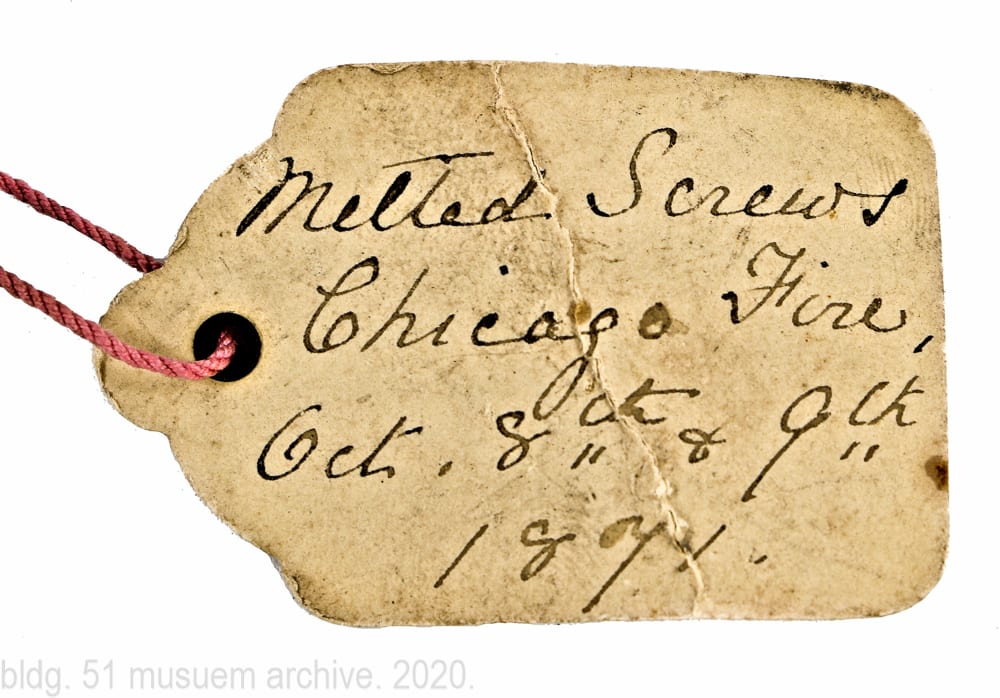 Melted Screws
Chicago Fire,
Oct. 8th & 9th
1871.
bldg. 51 musuem archive. 2020.